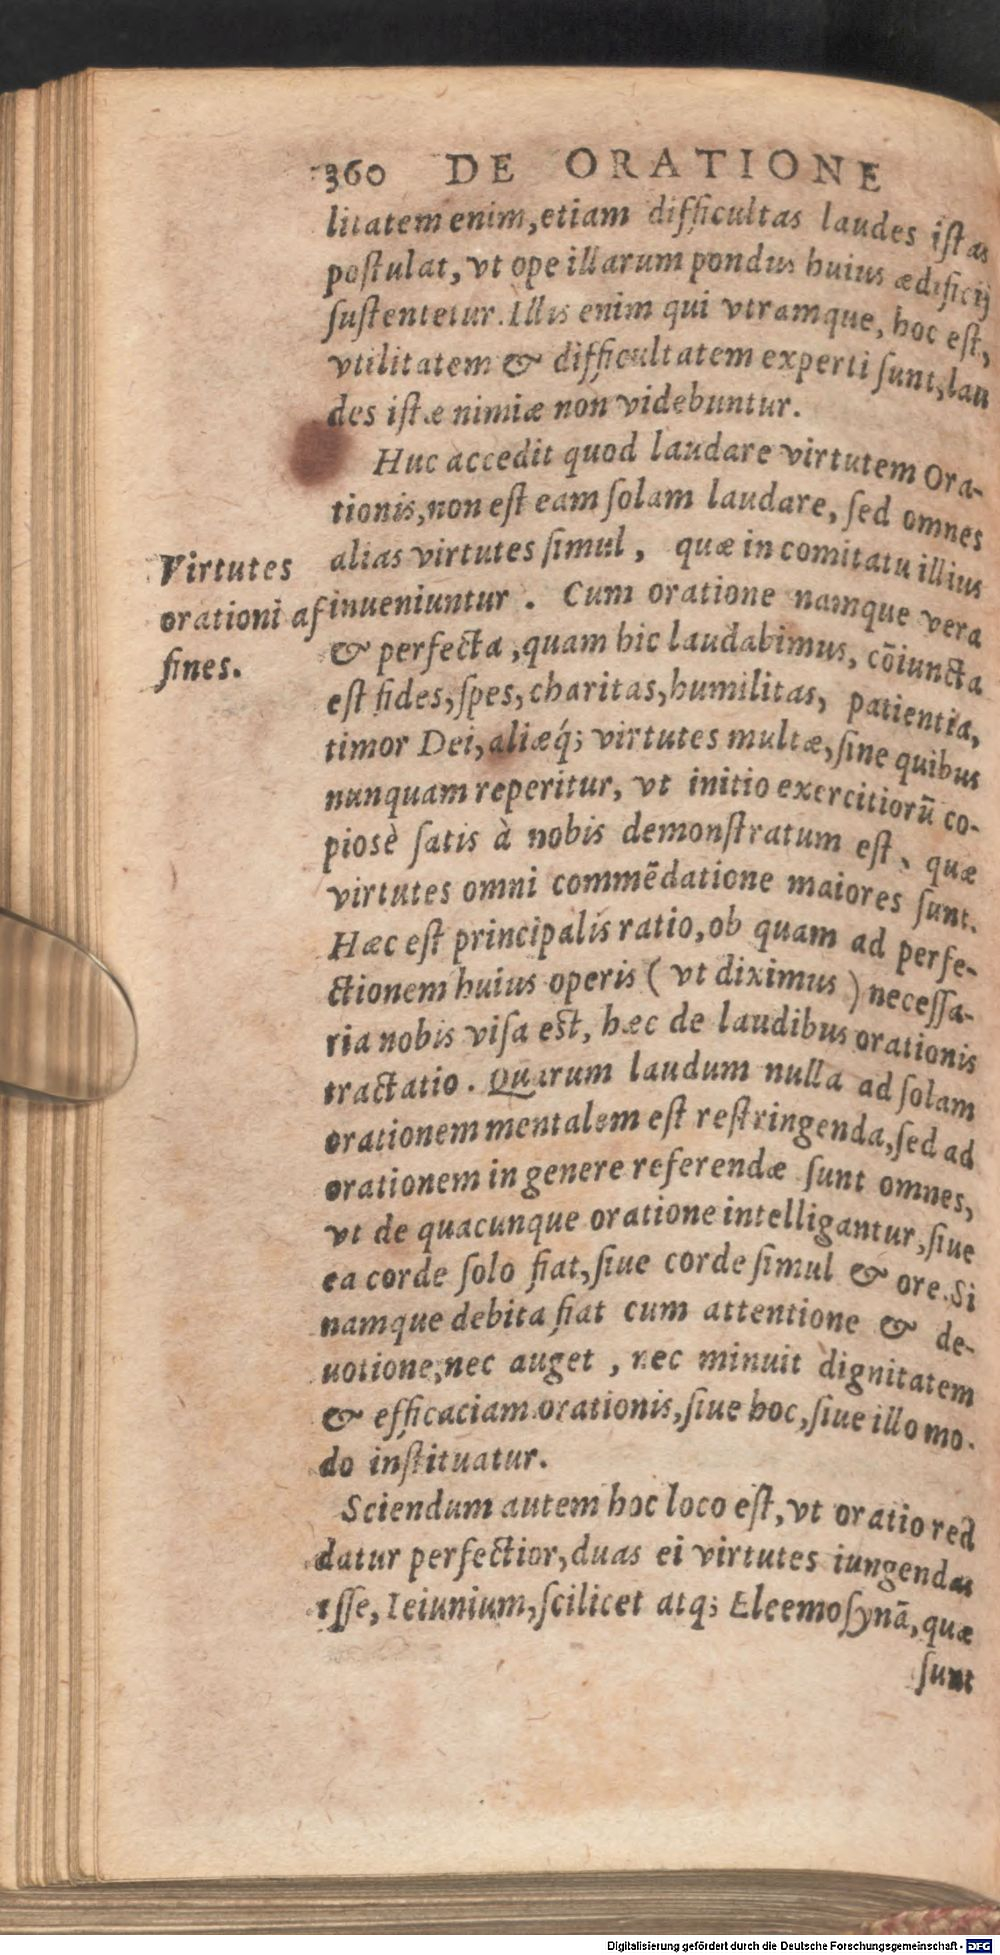 360 DE ORATIONE
litatem enim, etiam difficultas laudes istas
postulat, vt ope illarum pondus huius ædificij
sustentetur. Illis enim qui vtramque, hoc est,
vtilitatem & difficultatem experti sunt, lau
des istæ nimiæ non videbuntur.
Huc accedit quod laudare virtutem Ora-
tionis, non est eam solam laudare, sed omnes
alias virtutes simul, quæ in comitatu illius
inueniuntur. Cum oratione namque vera
& perfecta, quam hic laudabimus, cōiuncta
est fides, spes, charitas, humilitas, patientia,
timor Dei, aliæq́; virtutes multæ, sine quibus
nunquam reperitur, vt initio exercitiorū co-
piosè satis à nobis demonstratum est, quæ
virtutes omni commēdatione maiores sunt.
Hæc est principalis ratio, ob quam ad perfe-
ctionem huius operis (vt diximus) necessa-
ria nobis visa est, hæc de laudibus orationis
tractatio. Quarum laudum nulla ad solam
orationem mentalem est restringenda, sed ad
orationem in genere referendæ sunt omnes,
vt de quacunque oratione intelligantur, siue
ea corde solo fiat, siue corde simul & ore. Si
namque debita fiat cum attentione & de-
uotione, nec auget, nec minuit dignitatem
& efficaciam orationis, siue hoc, siue illo mo-
do instituatur.
Sciendum autem hoc loco est, vt oratio red
datur perfectior, duas ei virtutes iungendas
esse, Ieiunium, scilicet atq; Eleemosynā, quæ
sunt
Virtutes
orationi af
fines.
Digitalisierung gefördert durch die Deutsche Forschungsgemeinschaft - DFG